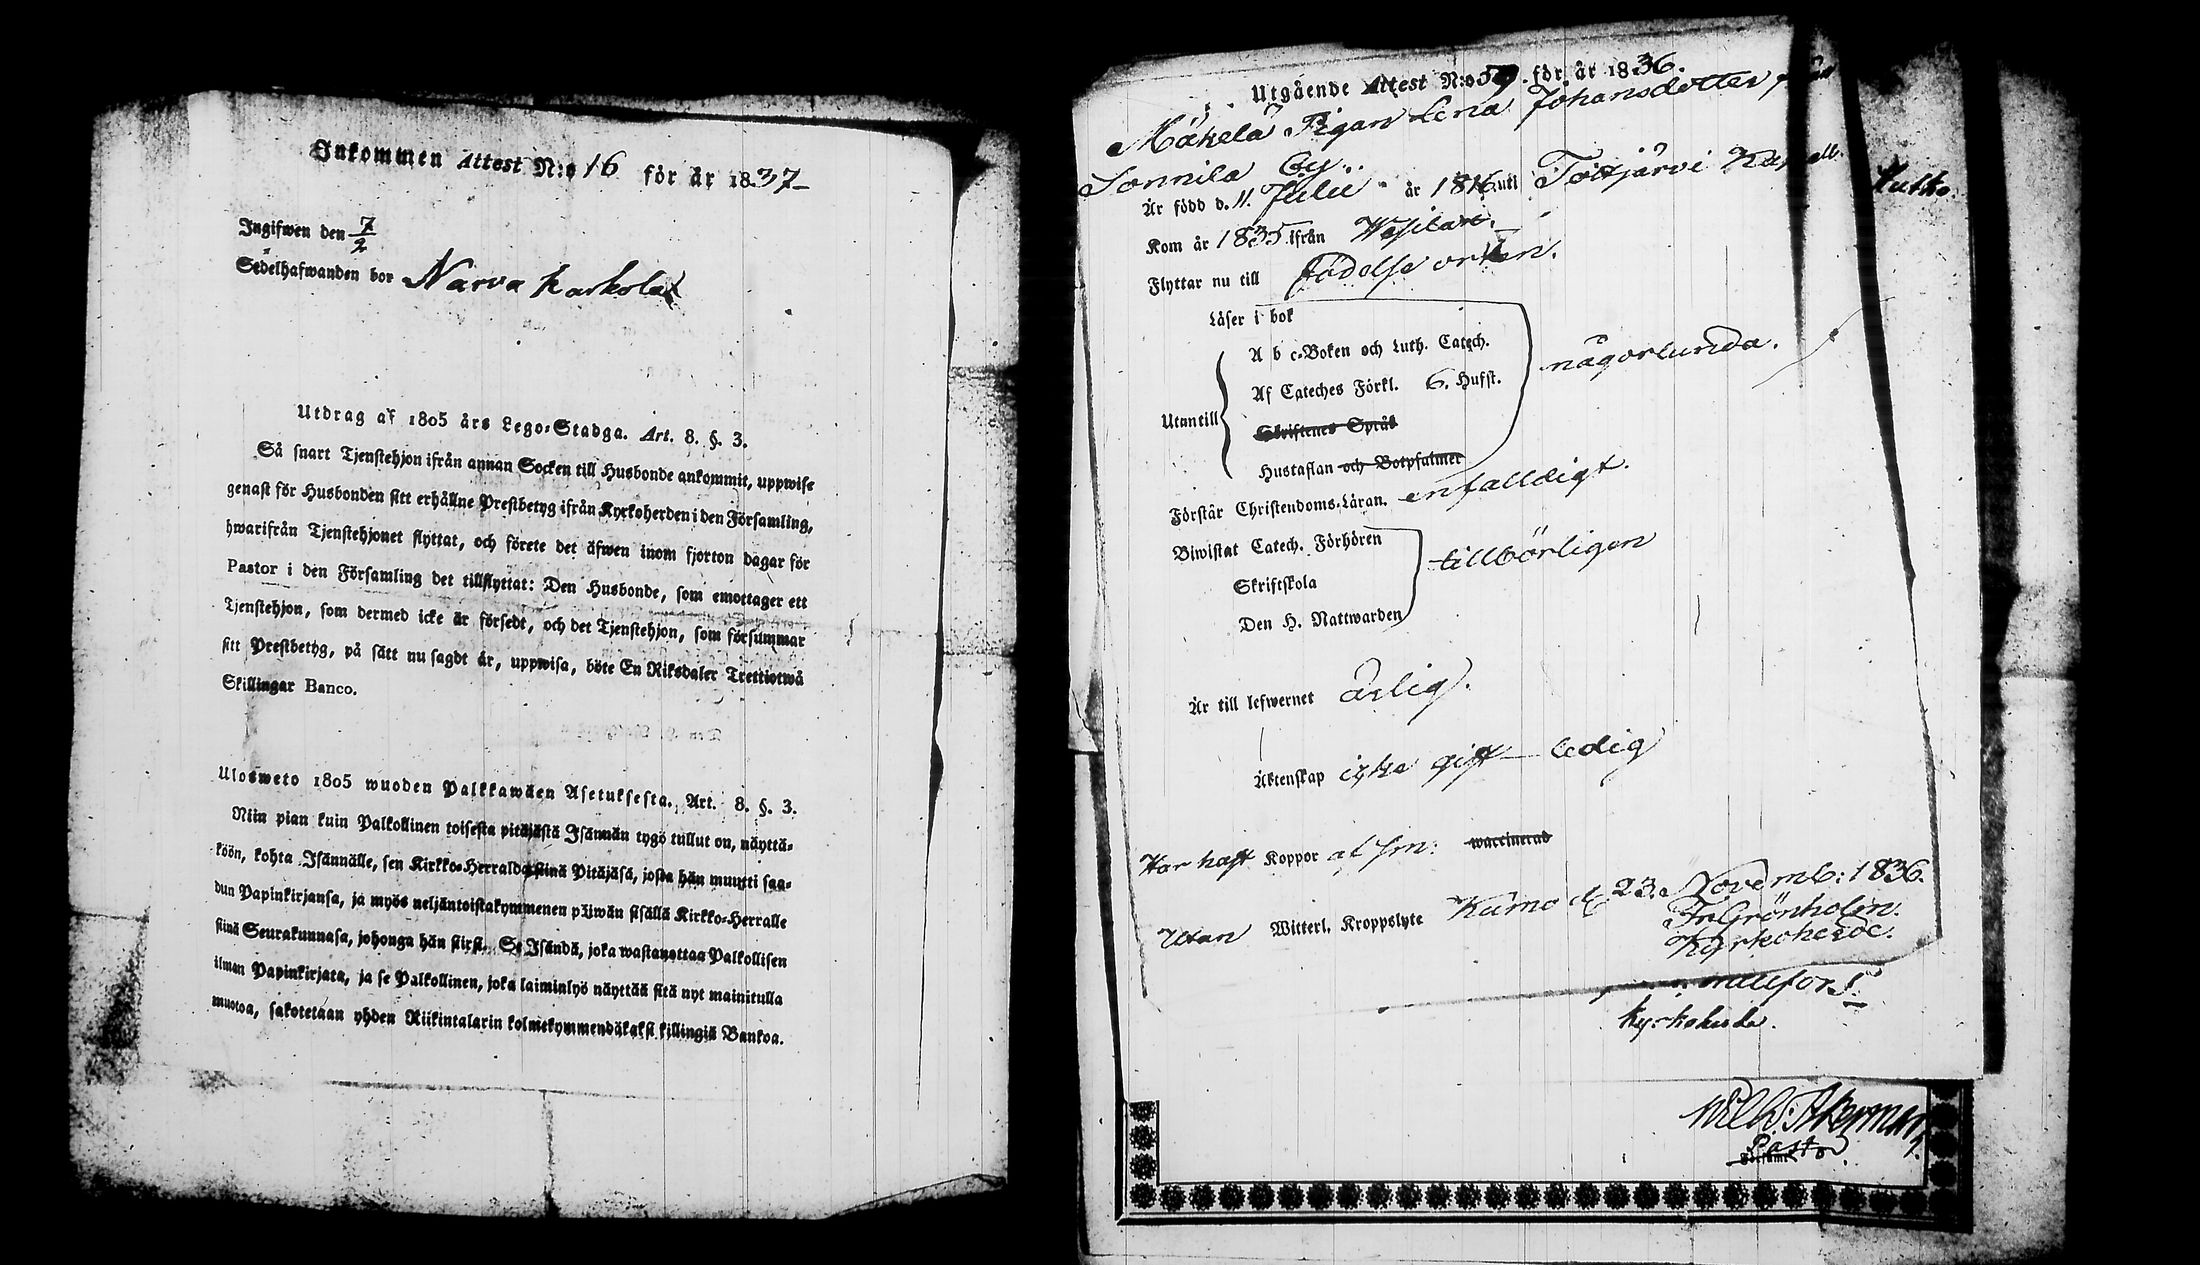 Inkommen Attest N:o 16 för år 1837
Ingifwen den 7/2
Sedelhafwanden bor Narva Karkola
Utdrag af 1805 års Lego-Stadga. Art. 8. §. 3.
Så snart Tjenstehjon ifrån annan Socken till Husbonde ankommit, uppwise
genast för Husbonden sitt erhållne Prestbetyg ifrån Kyrkoherden i den Församling,
hwarifrån Tjenstehjonet flyttat, och förete det äfwen inom fjorton dagar för
Pastor i den Församling det tillflyttat: Den Husbonde, som emottager ett
Tjenstehjon, som dermed icke är försedt, och det Tjenstehjon, som försummar
sitt Prestbetyg, på sätt nu sagdt är, uppwisa, böte En Riksdaler Trettiotwå
Skillingar Banco.
Ulosweto 1805 wuoden Palkkawäen Asetuksesta. Art. 8. §. 3.
Niin pian kuin Palkollinen toisesta pitäjästä Isännän tygö tullut on, näyttä-
köön, kohta Isännälle, sen Kirkko-Herralda siinä Pitäjäsä, josta hän muutti saa-
dun Papinkirjansa, ja myös neljäntoistakymmenen päiwän sisällä Kirkko-Herralle
siinä Seurakunnasa, johonga hän siirsi. Se Isändä, joka wastanottaa Palkollisen
ilman Papinkirjata, ja se Palkollinen, joka laiminlyö näyttää sitä nyt mainitulla
muotoa, sakotetaan yhden Riikintalarin kolmekymmendäkaksi killingiä Bankoa.
Utgående Attest N:o 59. för år 1836.
Mäkelä Pigan Lena Johansdotter från
Sonnila By.
Är född d. 11. Julii år 1816 uti Tottjärvi Kapell.
Kom år 1835 ifrån Wesilax.
Flyttar nu till födelse orten.
Läser i bok
A b c-Boken och Luth. Catech.
Af Cateches Förkl. 6. Hufst.
någorlunda.
Utantill
Skriftenes Språk
Hustaflan och Botpsalmer
Förstår Christendoms-Läran. enfalldigt.
Biwistat Catech. Förhören
Skriftskola
tillbörligen
Den H. Nattwarden
Är till lefwernet ärlig.
Äktenskap icke gift – ledig
Har haft Koppor waccinerad
Utan Witterl. Kroppslyte Kumo d. 23. Novemb: 1836.
Fr. Grönholm.
Kyrkoherde.
Kyrkoherde.
Wilh: Åkerman
Pastor